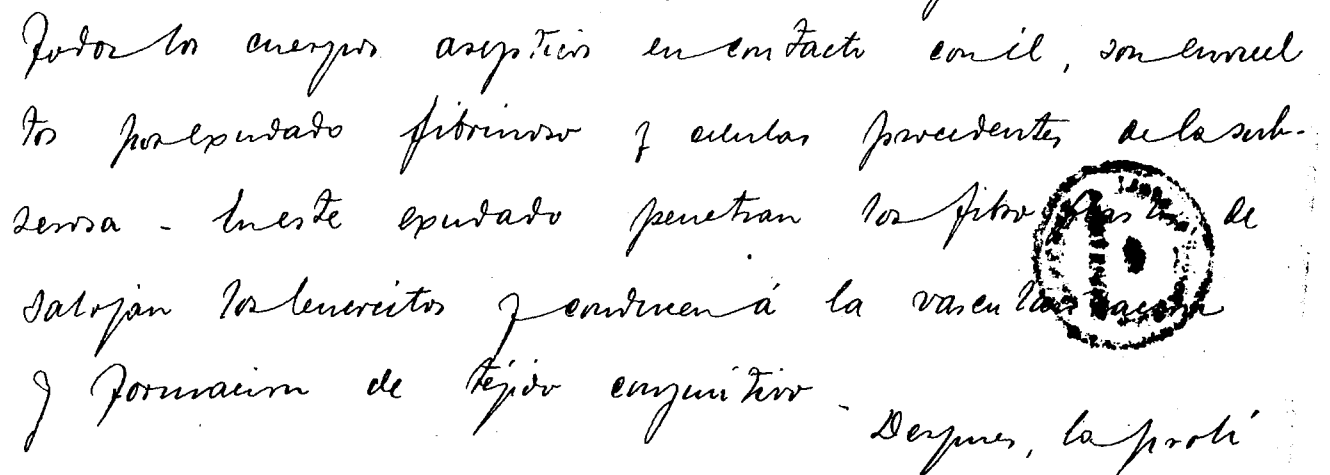 Todos los cuerpos asepticos en contacto con él, son envuel
tos por exudado fibrinoso y celulas procedentes de la sub-
serosa - En este exudado penetran los fibroblastos, de
salojan los leucocitos y conducen á la vascularizacion
y formacion de tejido conjuntivo - Despues, la proli